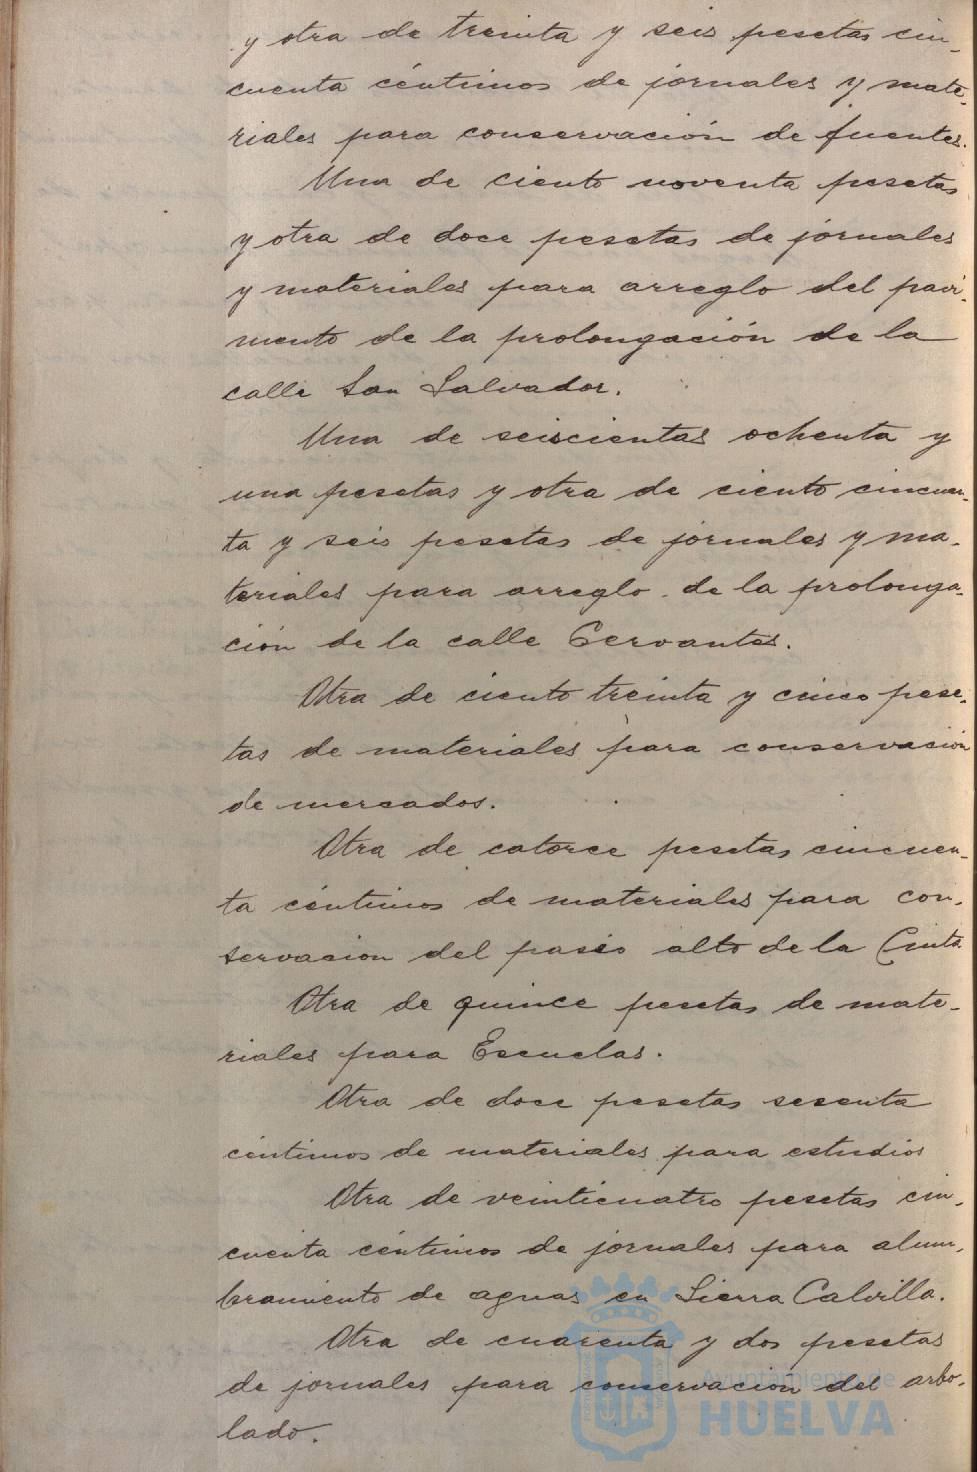 y otra de treinta y seis pesetas cin-
cuenta céntimos de jornales y mate-
riales para conservación de fuentes.
Una de ciento noventa pesetas
y otra de doce pesetas de jornales
y materiales para arreglo del pavi-
mento de la prolongación de la
calle San Salvador.
Una de seiscientas ochenta y
una pesetas y otra de ciento cincuen-
ta y seis pesetas de jornales y ma-
teriales para arreglo de la prolonga-
ción de la calle Cervantes.
Otra de ciento treinta y cinco pese-
tas de materiales para conservación
de mercados.
Otra de catorce pesetas cincuen-
ta céntimos de materiales para con-
servacion del paseo alto de la Cinta
Otra de quince pesetas de mate-
riales para Escuelas.
Otra de doce pesetas sesenta
céntimos de materiales para estudios
Otra de veinticuatro pesetas cin-
cuenta céntimos de jornales para alum-
bramiento de aguas en Sierra Calvilla.
Otra de cuarenta y dos pesetas
de jornales para conservación del arbo-
lado.
Ayuntamiento de
HUELVA